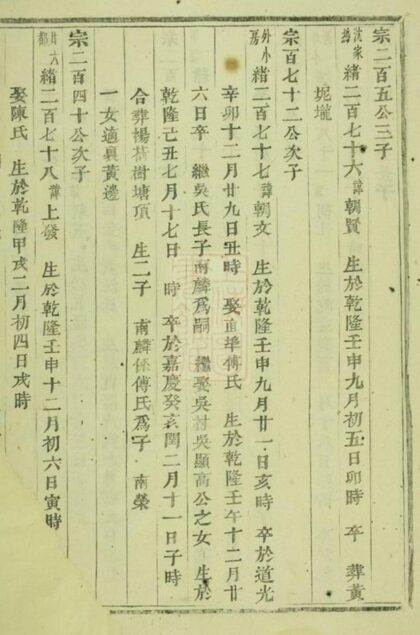 宗二百五公三子
沈家塘緒二百七十六諱朝賢 生於乾隆壬申九月初五日卯時 卒 葬黃
坭壠
宗百七十二公次子
外小房緒二百七十七諱朝文 生於乾隆壬申九月廿一日亥時 卒於道光
辛卯十二月廿九日丑時 娶 傅氏 生於乾隆壬午十二月廿
六日卒 繼吳氏長子南麟爲嗣 繼娶吳村吳顯高公之女 生於
乾隆己丑七月十七日 時 卒於嘉慶癸亥閏二月十一日子時
合葬楊梅樹塘頂 生二子 南麟係傅氏爲子 南榮
一女適裏黃邊
宗二百四十公次子
廿六都緒二百七十八諱上發 生於乾隆壬申十二月初六日寅時
娶陳氏 生於乾隆甲戌二月初四日戌時